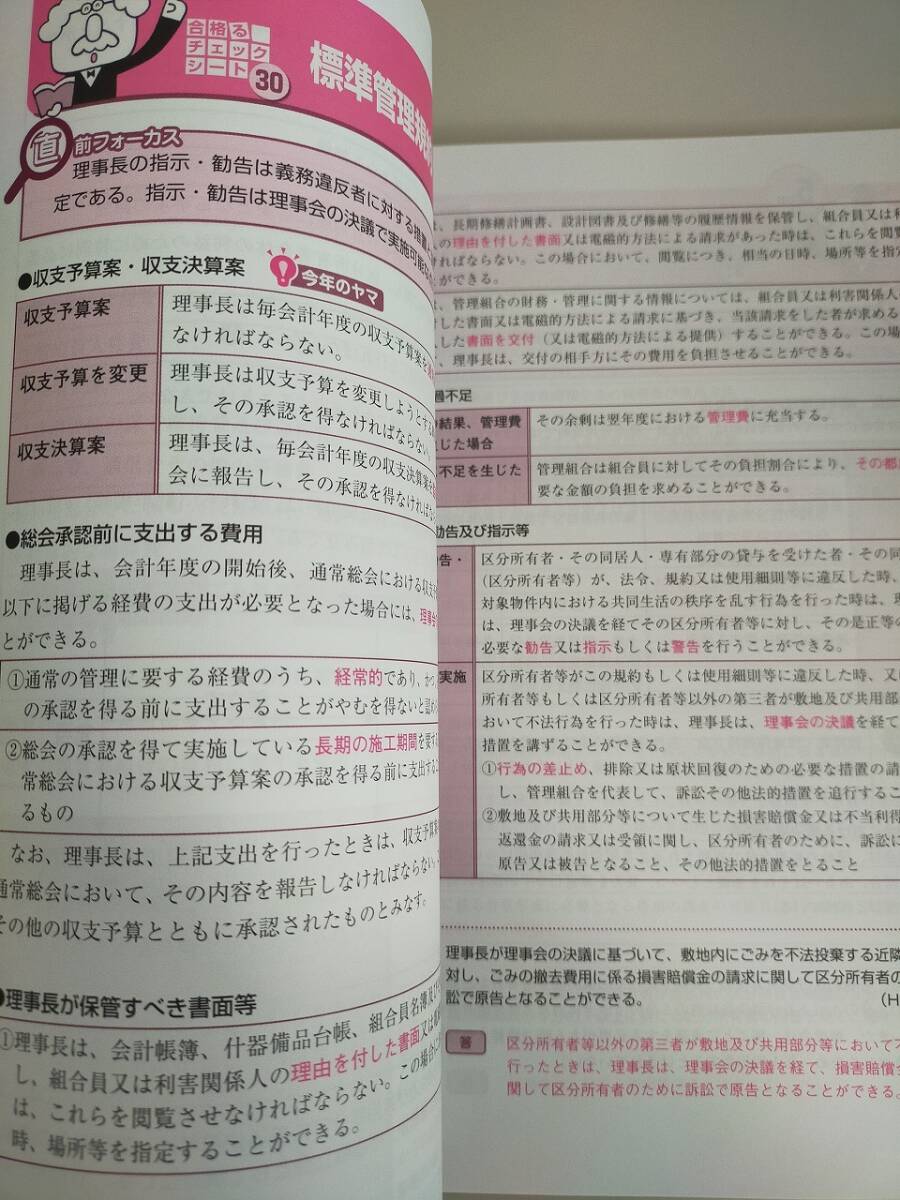 合格る
チェック
シート 30
標準管理規約
直前フォーカス
理事長の指示・勧告は義務違反者に対する措置
定である。指示・勧告は理事会の決議で実施可能
●収支予算案・収支決算案 今年のヤマ
収支予算案
理事長は毎会計年度の収支予算案を
なければならない。
収支予算を変更
理事長は収支予算を変更しようとする
し、その承認を得なければならない。
収支決算案
理事長は、毎会計年度の収支決算案を
会に報告し、その承認を得なければな
●総会承認前に支出する費用
理事長は、会計年度の開始後、通常総会における収支
以下に掲げる経費の支出が必要となった場合には、理事会
とができる。
①通常の管理に要する経費のうち、経常的であり、かつ
の承認を得る前に支出することがやむを得ないと認め
②総会の承認を得て実施している長期の施工期間を要する
常総会における収支予算案の承認を得る前に支出する
るもの
なお、理事長は、上記支出を行ったときは、収支予算案
通常総会において、その内容を報告しなければならない。
その他の収支予算とともに承認されたものとみなす。
●理事長が保管すべき書面等
①理事長は、会計帳簿、什器備品台帳、組合員名簿及び
し、組合員又は利害関係人の理由を付した書面又は
は、これらを閲覧させなければならない。この場合に
時、場所等を指定することができる。
は、長期修繕計画書、設計図書及び修繕等の履歴情報を保管し、組合員又は利
人の理由を付した書面又は電磁的方法による請求があった時は、これらを閲覧
ければならない。この場合において、閲覧につき、相当の日時、場所等を指定
ができる。
は、管理組合の財務・管理に関する情報については、組合員又は利害関係人
付した書面又は電磁的方法による請求に基づき、当該請求をした者が求める
した書面を交付(又は電磁的方法による提供)することができる。この場
、理事長は、交付の相手方にその費用を負担させることができる。
過不足
の結果、管理費
生じた場合
その余剰は翌年度における管理費に充当する。
不足を生じた
管理組合は組合員に対してその負担割合により、その都度
要な金額の負担を求めることができる。
勧告及び指示等
告・
区分所有者・その同居人・専有部分の貸与を受けた者・その同
(区分所有者等)が、法令、規約又は使用細則等に違反した時、
対象物件内における共同生活の秩序を乱す行為を行った時は、理
は、理事会の決議を経てその区分所有者等に対し、その是正等の
必要な勧告又は指示もしくは警告を行うことができる。
実施
区分所有者等がこの規約もしくは使用細則等に違反した時、又は
所有者等もしくは区分所有者等以外の第三者が敷地及び共用部
おいて不法行為を行った時は、理事長は、理事会の決議を経て
措置を講ずることができる。
①行為の差止め、排除又は原状回復のための必要な措置の請
し、管理組合を代表して、訴訟その他法的措置を追行するこ
②敷地及び共用部分等について生じた損害賠償金又は不当利得
返還金の請求又は受領に関し、区分所有者のために、訴訟に
原告又は被告となること、その他法的措置をとること
理事長が理事会の決議に基づいて、敷地内にごみを不法投棄する近隣
対し、ごみの撤去費用に係る損害賠償金の請求に関して区分所有者の
訟で原告となることができる。 (H
答
区分所有者等以外の第三者が敷地及び共用部分等において不
行ったときは、理事長は、理事会の決議を経て、損害賠償金
関して区分所有者のために訴訟で原告となることができる。